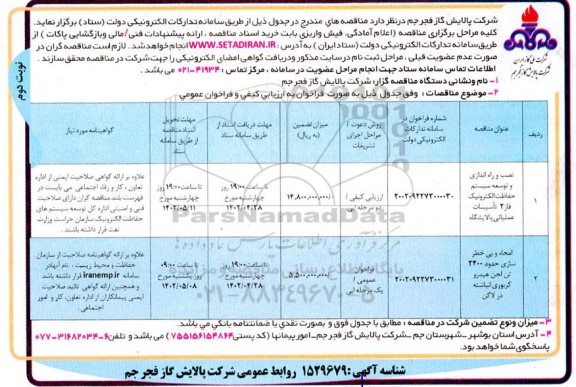 شرکت پالایش گاز فجر جم درنظر دارد مناقصه های مندرج در جدول ذیل از طریق سامانه تدارکات الکترونیکی دولت (ستاد) برگزار نماید.
کلیه مراحل برگزاری مناقصه (اعلام آمادگی، فیش واریزی بابت خرید اسناد مناقصه ، ارائه پیشنهادات فنی/مالی وبازگشایی پاکات ) از
طریق سامانه تدارکات الکترونیکی دولت (ستاد ایران ) به آدرس : WWW.SETADIRAN.IR انجام خواهد شد . لازم است مناقصه گران در
صورت عدم عضویت قبلی ، مراحل ثبت نام درسایت مذکور ودریافت گواهی امضای الکترونیکی را جهت شرکت در مناقصه محقق سازند .
اطلاعات تماس سامانه ستاد جهت انجام مراحل عضویت در سامانه : مرکز تماس : ۴۱۹۳۴-۰۲۱ می باشد .
۱- نام ونشانی دستگاه مناقصه گزار: شرکت پالایش گاز فجر جم
۲- موضوع مناقصات : وفق جدول ذیل به صورت فراخوان به ارزیابی کیفی و فراخوان عمومی
شرکت ملی گاز ایران
شرکت پالایش گاز فجر جم
نوبت دوم
ردیف
عنوان مناقصه
شماره فراخوان در سامانه تدارکات الکترونیکی دولت
روش دعوت / مراحل اجرای تشریفات
میزان تضمین (به ریال)
مهلت دریافت اسناد از طریق سامانه ستاد
مهلت تحویل اسناد مناقصه از طریق سامانه ستاد
گواهینامه مورد نیاز
۱
نصب و راه اندازی و توسعه سیستم حفاظت الکترونیک فاز ۲ تأسیسات عملیاتی پالایشگاه
۲۰۰۲۰۹۲۲۷۳۰۰۰۰۳۰
ارزیابی کیفی / دو مرحله ای
۱۴,۸۰۰,۰۰۰,۰۰۰
تا ساعت ۱۹:۰۰ روز چهارشنبه مورخ ۱۴۰۲/۰۴/۲۸
تا ساعت ۱۹:۰۰ روز چهارشنبه مورخ ۱۴۰۲/۰۵/۱۱
علاوه بر ارائه گواهی صلاحیت ایمنی از اداره تعاون ، کار و رفاه اجتماعی می بایست در فهرست بلند مناقصه گران دارای مجوز فنی و امنیتی اداره کل توسعه سیستم های حفاظت الکترونیک سازمان حراست وزارت نفت قرار داشته باشند .
۲
امحاء و بی خطر سازی حدود ۲۴۰۰ تن لجن هیدرو کربوری انباشته در لاگن
۲۰۰۲۰۹۲۲۷۳۰۰۰۰۳۱
فراخوان عمومی / یک مرحله ایی
۵,۵۰۰,۰۰۰,۰۰۰
تا ساعت ۱۹:۰۰ روز چهارشنبه مورخ ۱۴۰۲/۰۴/۲۸
تا ساعت ۰۹:۰۰ روز یکشنبه مورخ ۱۴۰۲/۰۵/۰۸
علاوه بر ارائه گواهینامه صلاحیت از سازمان حفاظت و محیط زیست ، نام آنها در سامانه iranemp.ir قرار داشته باشد و همچنین ارائه گواهی تائید صلاحیت ایمنی پیمانکاران از اداره تعاون، کار و امور اجتماعی
ParsNamadData
مرکز فرآوری اطلاعات پارس نماد داده ها
۰۲۱-۸۸۳۴۹۶۷۰-۵
۳- میزان ونوع تضمین شرکت در مناقصه : مطابق با جدول فوق و بصورت نقدی یا ضمانتنامه بانکی می باشد.
۴- آدرس استان بوشهر_شهرستان جم _ شرکت پالایش گاز فجر جم_امور پیمانها (کد پستی ۷۵۵۱۵۶۱۵۴۸۶۴) می باشد و تلفن ۶-۳۱۶۸۲۰۳۴-۰۷۷
پاسخگوی شما خواهد بود.
شناسه آگهی : ۱۵۲۹۶۷۹ روابط عمومی شرکت پالایش گاز فجر جم